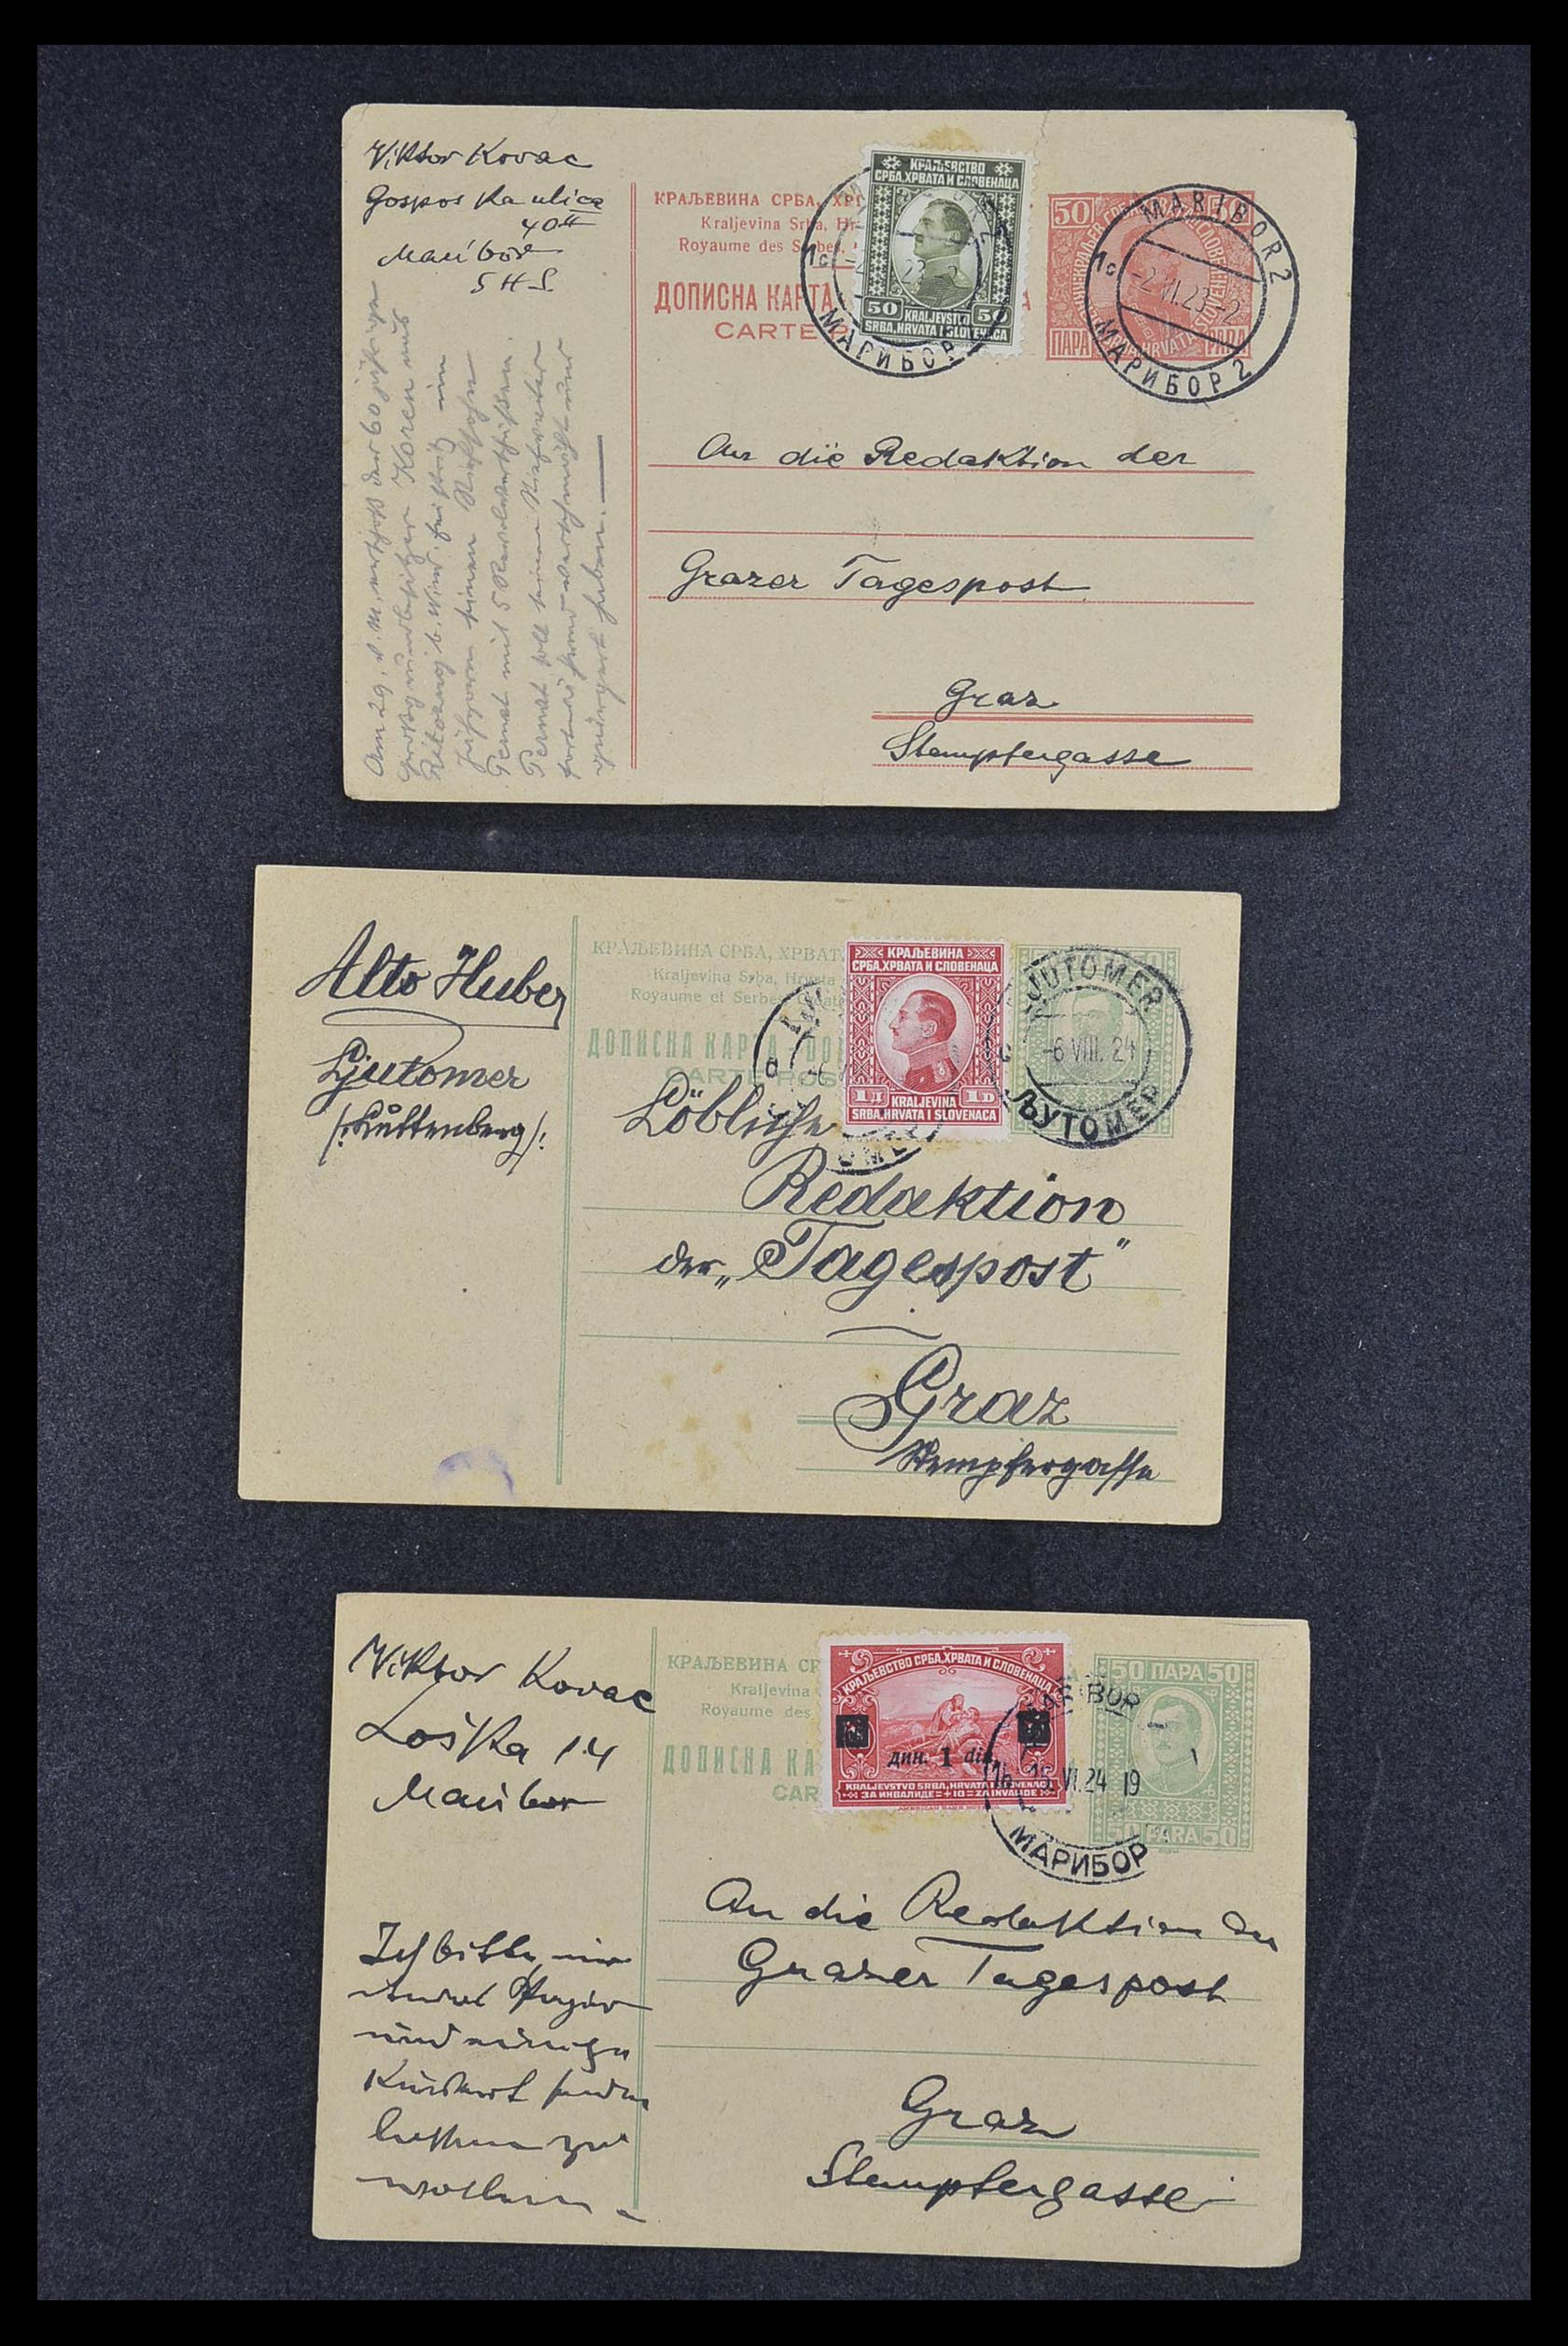 Viktor Kovac
Gosposka ulica
40 II
Maribor
S H S.
КРАЉЕВИНА СРБА, ХРВ
Kraljevina Srba, Hr
Royaume des Serbes,
ДОПИСНА КАРТА
CARTE P
КРАЉЕВСТВО
СРБА, ХРВАТА И СЛОВЕНАЦА
50 KRALJEVSTVO 50
SRBA, HRVATA I SLOVENACA
МАРИБОР
50
ПАРА PARA
MARIBOR 2
1c -2 VI. 23 -2
МАРИБОР 2
Am 29. v. M. erschoß der 60 jährige
Koren aus
b. Wind. Feistritz im
seinen
Pernat mit 5 Revolverschüssen.
Pernat soll seinen
haben.
An die Redaktion der
Grazer Tagespost
Graz
Stempfergasse
Alto Huber
Ljutomer
/:Luttenberg/:
КРАЉЕВИНА СРБА, ХРВАТ
Kraljevina Srba, Hrvata
Royaume et Serbes,
ДОПИСНА КАРТА DOP
CARTE POS
КРАЉЕВИНА
СРБА, ХРВАТА И СЛОВЕНАЦА
1Д KRALJEVINA 1D
SRBA, HRVATA I SLOVENACA
LJUTOMER
-6 VIII. 24
ЉУТОМЕР
Löbliche
Redaktion
der „Tagespost"
Graz
Stempfergasse
Viktor Kovac
Loška 14
Maribor
КРАЉЕВИНА СР
Kraljevina
Royaume des
ДОПИСНА КА
CAR
КРАЉЕВСТВО СРБА, ХРВАТА И СЛОВЕНАЦА
дин. 1 din.
KRALJEVSTVO SRBA, HRVATA I SLOVENACA
ЗА ИНВАЛИДЕ = + 10 = ZA INVALIDE
AMERICAN BANK NOTE
50 ПАРА 50
50 PARA 50
MARIBOR
15. VI. 24 19
МАРИБОР
Ich bitte, mir
und einige
senden
lassen zu
wollen.
An die Redaktion der
Grazer Tagespost
Graz
Stempfergasse